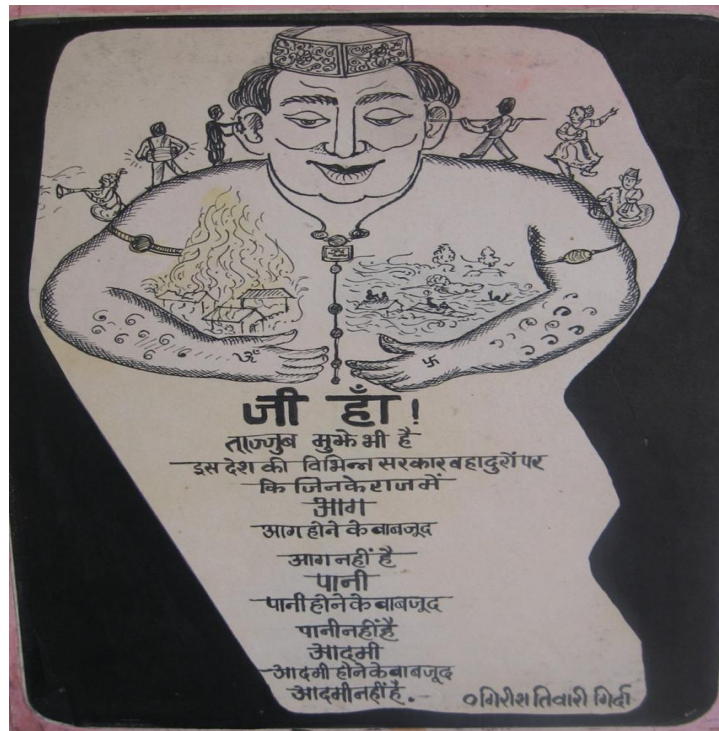 ॐ
卐
जी हाँ!
ताज्जुब मुझे भी है
इस देश की विभिन्न सरकार बहादुरों पर
कि जिनके राज में
आग
आग होने के बाबजूद
आग नहीं है
पानी
पानी होने के बाबजूद
पानी नहीं है
आदमी
आदमी होने के बाबजूद
आदमी नहीं है.
० गिरीश तिवारी गिर्दा